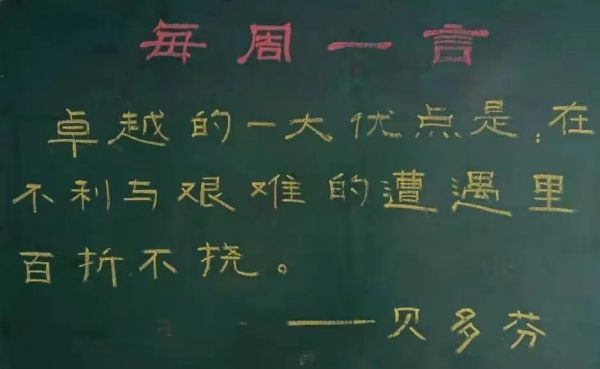 每周一言
卓越的一大优点是:在
不利与艰难的遭遇里
百折不挠。
——贝多芬